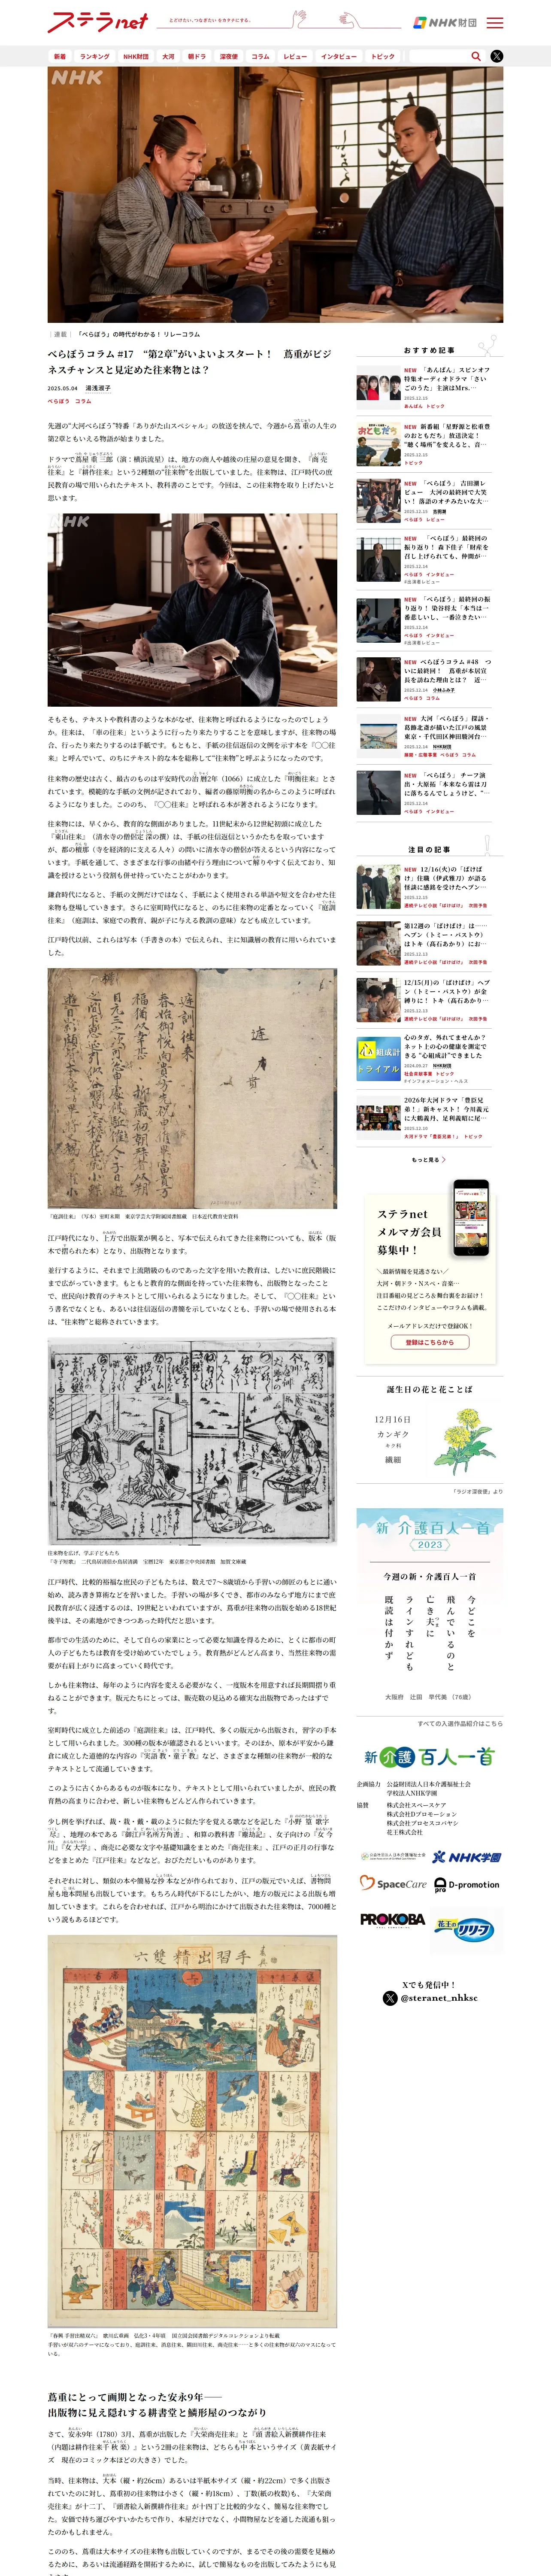 ステラnet
とどけたい、つなぎたい をカタチにする。
NHK財団
新着
ランキング
NHK財団
大河
朝ドラ
深夜便
コラム
レビュー
インタビュー
トピック
NHK
｜連載｜ 「べらぼう」の時代がわかる！ リレーコラム
べらぼうコラム #17　“第2章”がいよいよスタート！　蔦重がビジ
ネスチャンスと見定めた往来物とは？
2025.05.04 湯浅淑子
べらぼう コラム
先週の“大河べらぼう”特番「ありがた山スペシャル」の放送を挟んで、今週から蔦重の人生の
第2章ともいえる物語が始まりました。
ドラマで蔦屋重三郎（演：横浜流星）は、地方の商人や越後の庄屋の意見を聞き、『商売
往来』と『耕作往来』という2種類の“往来物”を出版していました。往来物は、江戸時代の庶
民教育の場で用いられたテキスト、教科書のことです。今回は、この往来物を取り上げたいと
思います。
NHK
そもそも、テキストや教科書のような本がなぜ、往来物と呼ばれるようになったのでしょう
か。往来は、「車の往来」というように行ったり来たりを意味しますが、往来物の場
合、行ったり来たりするのは手紙です。もともと、手紙の往信返信の文例を示す本を『〇〇往
来』と呼んでいて、のちにテキスト的な本を総称して“往来物”と呼ぶようになったのです。
往来物の歴史は古く、最古のものは平安時代の治暦2年（1066）に成立した『明衡往来』とさ
れています。模範的な手紙の文例が記されており、編者の藤原明衡の名からこのように呼ばれ
るようになりました。こののち、『〇〇往来』と呼ばれる本が著されるようになります。
往来物には、早くから、教育的な側面がありました。11世紀末から12世紀初頭に成立した
『東山往来』（清水寺の僧侶定深の撰）は、手紙の往信返信というかたちを取っています
が、都の檀那（寺を経済的に支える人々）の問いに清水寺の僧侶が答えるという内容になって
います。手紙を通して、さまざまな行事の由緒や行う理由について解りやすく伝えており、知
識を授けるという役割も併せ持っていたことがわかります。
鎌倉時代になると、手紙の文例だけではなく、手紙によく使用される単語や短文を合わせた往
来物も登場していきます。さらに室町時代になると、のちに往来物の定番となっていく『庭訓
往来』（庭訓は、家庭での教育、親が子に与える教訓の意味）なども成立しています。
江戸時代以前、これらは写本（手書きの本）で伝えられ、主に知識層の教育に用いられていま
した。
『庭訓往来』（写本）室町末期　東京学芸大学附属図書館蔵　日本近代教育史資料
江戸時代になり、上方で出版業が興ると、写本で伝えられてきた往来物についても、版本（版
木で摺られた本）となり、出版物となります。
並行するように、それまで上流階級のものであった文字を用いた教育は、しだいに庶民階級に
まで広がっていきます。もともと教育的な側面を持っていた往来物も、出版物となったこと
で、庶民向け教育のテキストとして用いられるようになりました。そして、『〇〇往来』とい
う書名でなくとも、あるいは往信返信の書簡を示していなくとも、手習いの場で使用される本
は、“往来物”と総称されていきます。
往来物を広げ、学ぶ子どもたち
『寺子短歌』　二代鳥居清倍か鳥居清満　宝暦12年　東京都立中央図書館　加賀文庫蔵
江戸時代、比較的裕福な庶民の子どもたちは、数えで7〜8歳頃から手習いの師匠のもとに通い
始め、読み書き算術などを習いました。手習いの場が多くでき、都市のみならず地方にまで庶
民教育が広く浸透するのは、19世紀といわれていますが、蔦重が往来物の出版を始める18世紀
後半は、その素地ができつつあった時代だと思います。
都市での生活のために、そして自らの家業にとって必要な知識を得るために、とくに都市の町
人の子どもたちは教育を受け始めていたでしょう。庶民教育がどんどん高まり、当然往来物の需
要が右肩上がりに高まっていく時代です。
しかも往来物は、毎年のように内容を変える必要がなく、一度版木を用意すれば長期間摺り重
ねることができます。版元たちにとっては、販売数の見込める確実な出版物であったはずで
す。
室町時代に成立した前述の『庭訓往来』は、江戸時代、多くの版元から出版され、習字の手本
として用いられました。300種の版本が確認されるといいます。そのほか、原本が平安から鎌
倉に成立した道徳的な内容の『実語教・童子教』など、さまざまな種類の往来物が一般的な
テキストとして流通していきます。
このように古くからあるものが版本になり、テキストとして用いられていましたが、庶民の教
育熱の高まりに合わせ、新しい往来物もどんどん作られていきます。
少し例を挙げれば、哉・我・戴・載のように似た字を覚える歌などを記した『小野篁歌字
尽』、地理の本である『御江戸名所方角書』、和算の教科書『塵劫記』、女子向けの『女今
川』『女大学』、商売に必要な文字や基礎知識をまとめた『商売往来』、江戸の正月の行事な
どをまとめた『江戸往来』などなど。おびただしいものがあります。
それぞれに対し、類似の本や簡易な抄本などが作られており、江戸の版元でいえば、書物問
屋も地本問屋も出版しています。もちろん時代が下るにしたがい、地方の版元による出版も増
加していきます。これらを合わせれば、江戸から明治にかけて出版された往来物は、7000種と
いう説もあるほどです。
春興手習出精雙六
『春興 手習出精双六』　歌川広重画　弘化3・4年頃　国立国会図書館デジタルコレクションより転載
手習いが双六のテーマになっており、庭訓往来、消息往来、隅田川往来、商売往来──と多くの往来物が双六のマスになって
いる。
蔦重にとって画期となった安永9年──
出版物に見え隠れする耕書堂と鱗形屋のつながり
さて、安永9年（1780）3月、蔦重が出版した『大栄商売往来』と『頭書絵入新撰耕作往来
（内題は耕作往来千秋楽）』という2冊の往来物は、どちらも中本というサイズ（黄表紙サイ
ズ　現在のコミック本ほどの大きさ）でした。
当時、往来物は、大本（縦・約26cm）あるいは半紙本サイズ（縦・約22cm）で多く出版さ
れていたのに対し、蔦重初の往来物は小さく（縦・約18cm）、丁数(紙の枚数)も、『大栄商
売往来』が十二丁、『頭書絵入新撰耕作往来』が十四丁と比較的少なく、簡易な往来物でし
た。安価で持ち運びやすいかたちで作り、本屋だけでなく、小間物屋などを通した流通も狙っ
たのかもしれません。
こののち、蔦重は大本サイズの往来物も出版していくのですが、まるでその後の需要を見極め
るために、あるいは流通経路を開拓するために、試しで簡易なものを出版してみたようにも見
おすすめ記事
NEW 「あんぱん」スピンオフ
特集オーディオドラマ「さい
ごのうた」主演はMrs.…
2025.12.15
あんぱん トピック
NEW 新番組「星野源と松重豊
のおともだち」放送決定！
“聴く場所”を変えると、音…
2025.12.15
トピック
NEW 「べらぼう」 吉田潮レ
ビュー　大河の最終回で大笑
い！ 落語のオチみたいな大…
2025.12.15 吉田潮
べらぼう レビュー
NEW 「べらぼう」最終回の
振り返り！ 森下佳子「財産を
召し上げられても、仲間が…
2025.12.14
べらぼう インタビュー
#出演者レビュー
NEW 「べらぼう」最終回の振
り返り！ 染谷将太「本当は一
番悲しいし、一番泣きたい…
2025.12.14
べらぼう インタビュー
#出演者レビュー
NEW べらぼうコラム #48　つ
いに最終回！　蔦重が本居宣
長を訪ねた理由とは？　近…
2025.12.14 小林ふみ子
べらぼう コラム
NEW 大河「べらぼう」探訪・
葛飾北斎が描いた江戸の風景
東京・千代田区神田駿河台…
2025.12.14 NHK財団
展開・広報事業 べらぼう コラム
NEW 「べらぼう」 チーフ演
出・大原拓「本来なら雷は刀
に落ちるんでしょうけど、“…
2025.12.14
べらぼう インタビュー
注目の記事
NEW 12/16(火)の「ばけば
け」住職（伊武雅刀）が語る
怪談に感銘を受けたヘブン…
2025.12.15
連続テレビ小説「ばけばけ」 次回予告
第12週の「ばけばけ」は──
ヘブン（トミー・バストウ）
はトキ（髙石あかり）にお…
2025.12.13
連続テレビ小説「ばけばけ」 次回予告
12/15(月)の「ばけばけ」ヘブ
ン（トミー・バストウ）が金
縛りに！ トキ（髙石あかり…
2025.12.13
連続テレビ小説「ばけばけ」 次回予告
心のタガ、外れてませんか？
ネット上の心の健康を測定で
きる “心組成計”できました
2024.09.27 NHK財団
社会貢献事業 トピック
#インフォメーション・ヘルス
2026年大河ドラマ「豊臣兄
弟！」新キャスト！ 今川義元
に大鶴義丹、足利義昭に尾…
2025.12.10
大河ドラマ「豊臣兄弟！」 トピック
もっと見る
ステラnet
メルマガ会員
募集中！
＼最新情報を見逃さない／
大河・朝ドラ・Nスペ・音楽…
注目番組の見どころ＆舞台裏をお届け！
ここだけのインタビューやコラムも満載。
メールアドレスだけで登録OK！
登録はこちらから
誕生日の花と花ことば
12月16日
カンギク
キク科
繊細
「ラジオ深夜便」より
新 介護百人一首
2023
今週の新・介護百人一首
今どこを
飛んでいるのと
亡き夫に
ラインすれども
既読は付かず
大阪府　辻岡　早代美 （76歳）
すべての入選作品紹介はこちら
新 介護 百人一首
企画協力 公益財団法人日本介護福祉士会
学校法人NHK学園
協賛 株式会社スペースケア
株式会社Dプロモーション
株式会社プロセスコバヤシ
花王株式会社
公益社団法人日本介護福祉士会
NHK学園
SpaceCare
D-promotion
PROKOBA
花王の リリーフ
Xでも発信中！
@steranet_nhksc